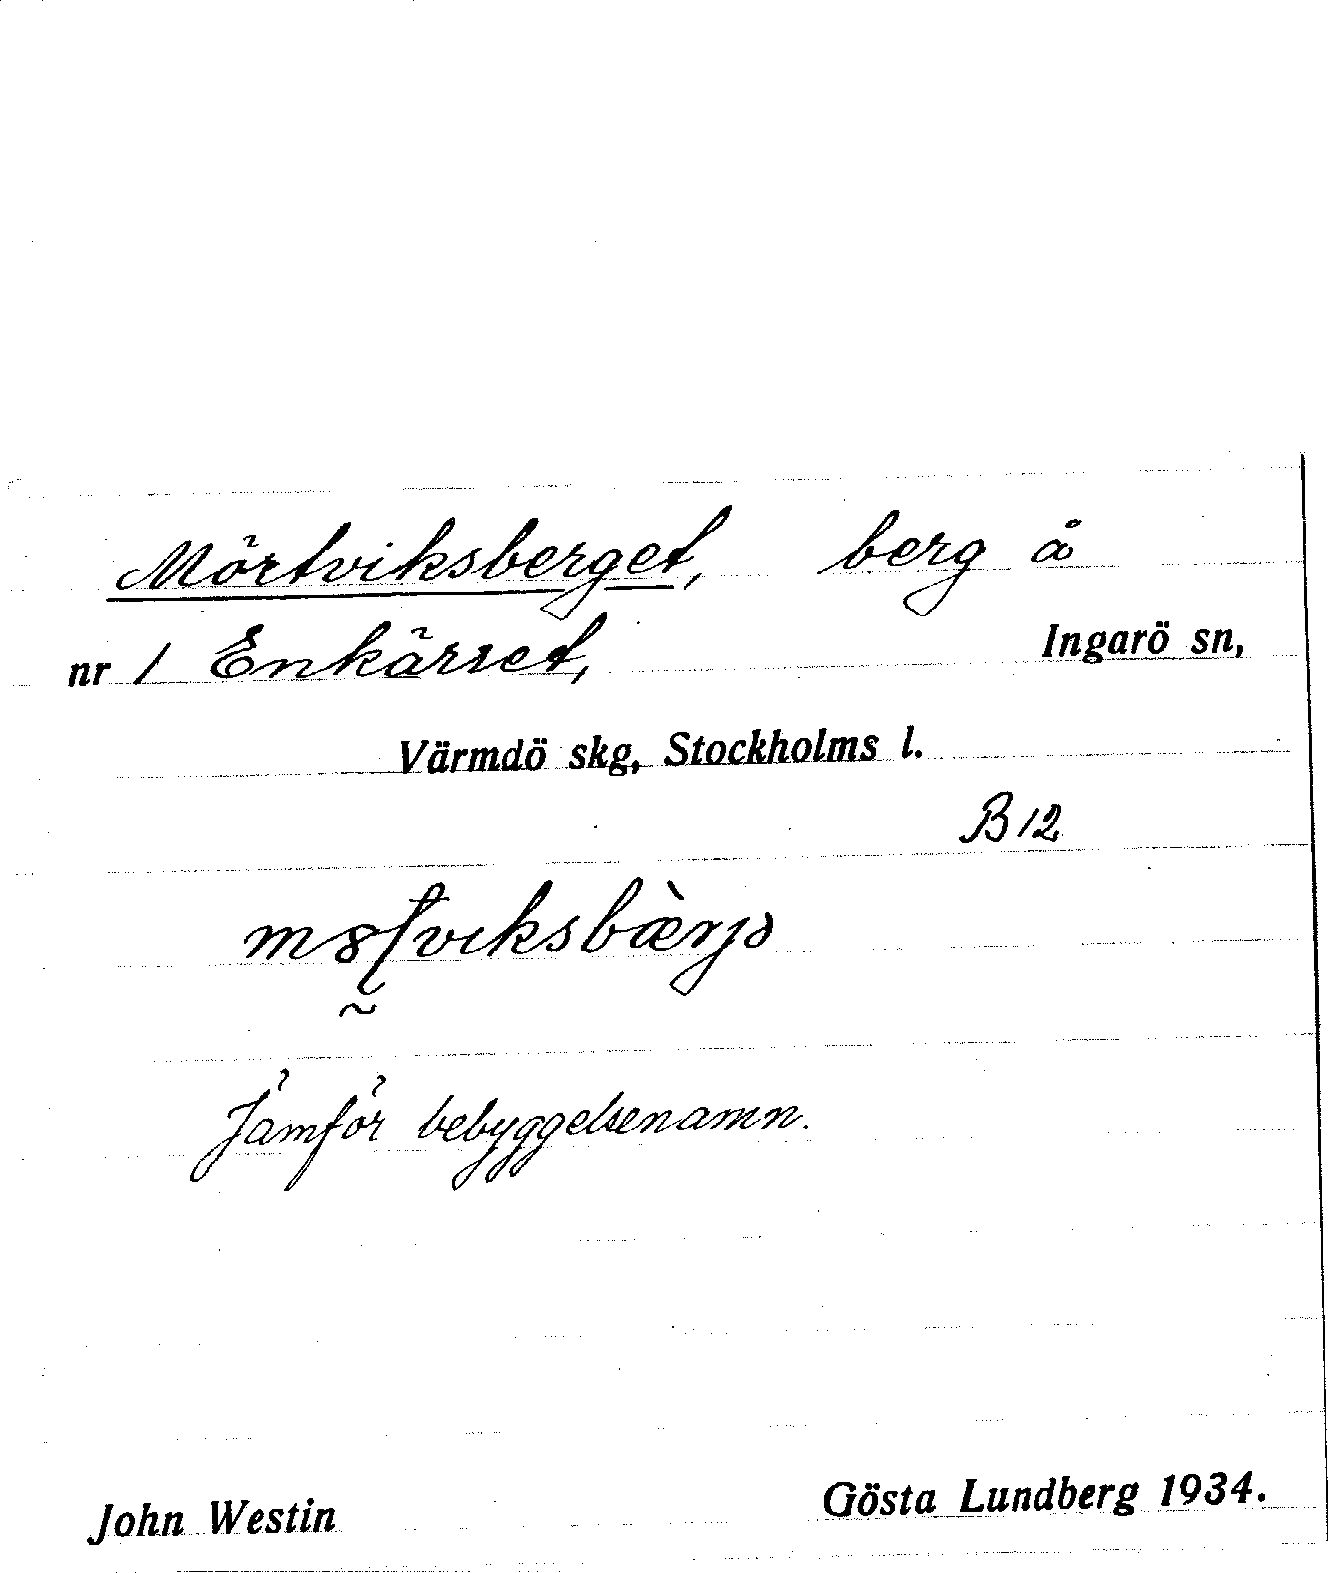 Mörtviksberget, berg å
nr 1 Enkärret, Ingarö sn,
Värmdö skg, Stockholms l.
B 12
Jämför bebyggelsenamn.
John Westin Gösta Lundberg 1934.